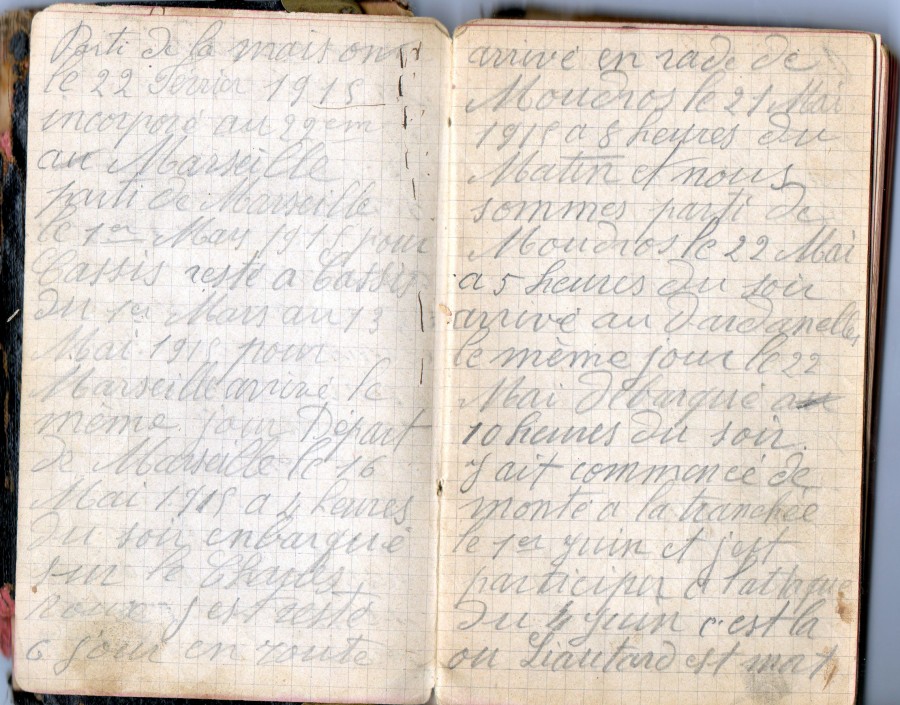 Parti de la maison
le 22 Fevrier 1915
incorporé au 22em
au Marseille
parti de Marseille
le 1er Mars 1915 pour
Cassis resté a Cassis
du 1er Mars au 13
Mai 1915 pour
Marseille arrivé le
même jour Départ
de Marseille le 16
Mai 1915 a 4 heures
du soir enbarqué
sur le Charles
roux j est resté
6 jour en route
arrivé en rade de
Moudros le 21 Mai
1915 a 8 heures du
Matin et nous
sommes parti de
Moudros le 22 Mai
a 5 heures du soir
arrivé au Dardanelles
le même jour le 22
Mai débarqué
10 heures du soir.
J ait commencé de
monté a la tranchée
le 1er Juin et j'est
participer a l'attaque
du 4 Juin c'est la
ou Liautard est mort